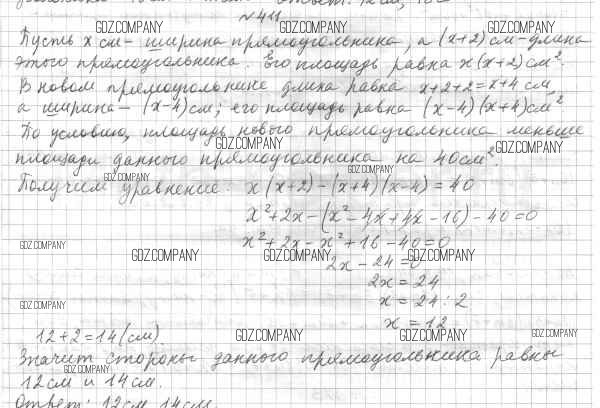 №411
GDZ.COMPANY GDZ.COMPANY GDZ.COMPANY
Пусть x см - ширина прямоугольника, а (x+2) см - длина
этого прямоугольника. Его площадь равна x(x+2) см².
В новом прямоугольнике длина равна x+2+2=x+4 см,
а ширина - (x-4) см; его площадь равна (x-4)(x+4) см²
По условию, площадь нового прямоугольника меньше
GDZ.COMPANY GDZ.COMPANY
площади данного прямоугольника на 40 см².
GDZ.COMPANY GDZ.COMPANY
Получим уравнение: x(x+2)-(x+4)(x-4)=40
x²+2x-(x²-4x+4x-16)-40=0
x²+2x-x²+16-40=0
GDZ.COMPANY GDZ.COMPANY GDZ.COMPANY GDZ.COMPANY
2x-24=0
2x=24
x=24:2
GDZ.COMPANY
x=12
12+2=14 (см).
GDZ.COMPANY GDZ.COMPANY GDZ.COMPANY
Значит стороны данного прямоугольника равны
GDZ.COMPANY
12 см и 14 см.
Ответ: 12 см, 14 см.